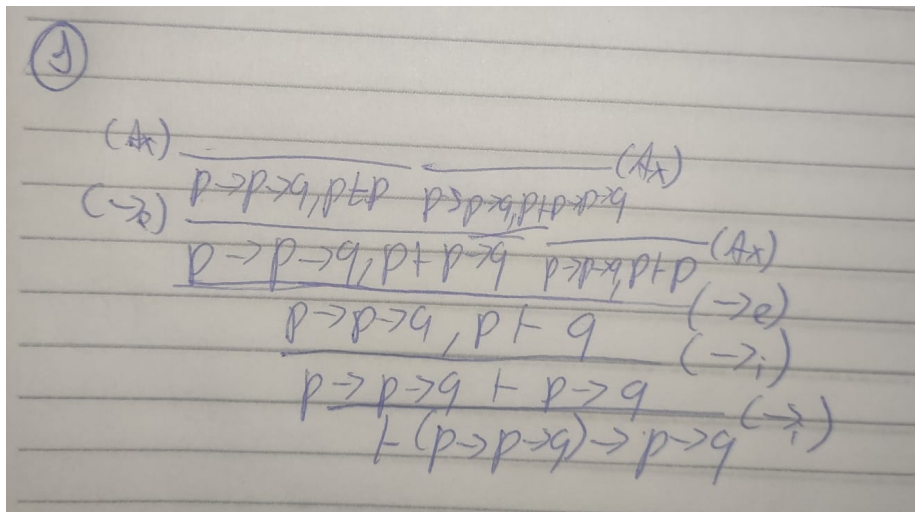 1
(Ax) (Ax)
p→p→q, p⊢p p→p→q, p⊢p→p→q
(→e) (Ax)
p→p→q, p⊢p→q p→p→q, p⊢p
(→e)
p→p→q, p⊢q
(→i)
p→p→q ⊢ p→q
(→i)
⊢(p→p→q)→p→q